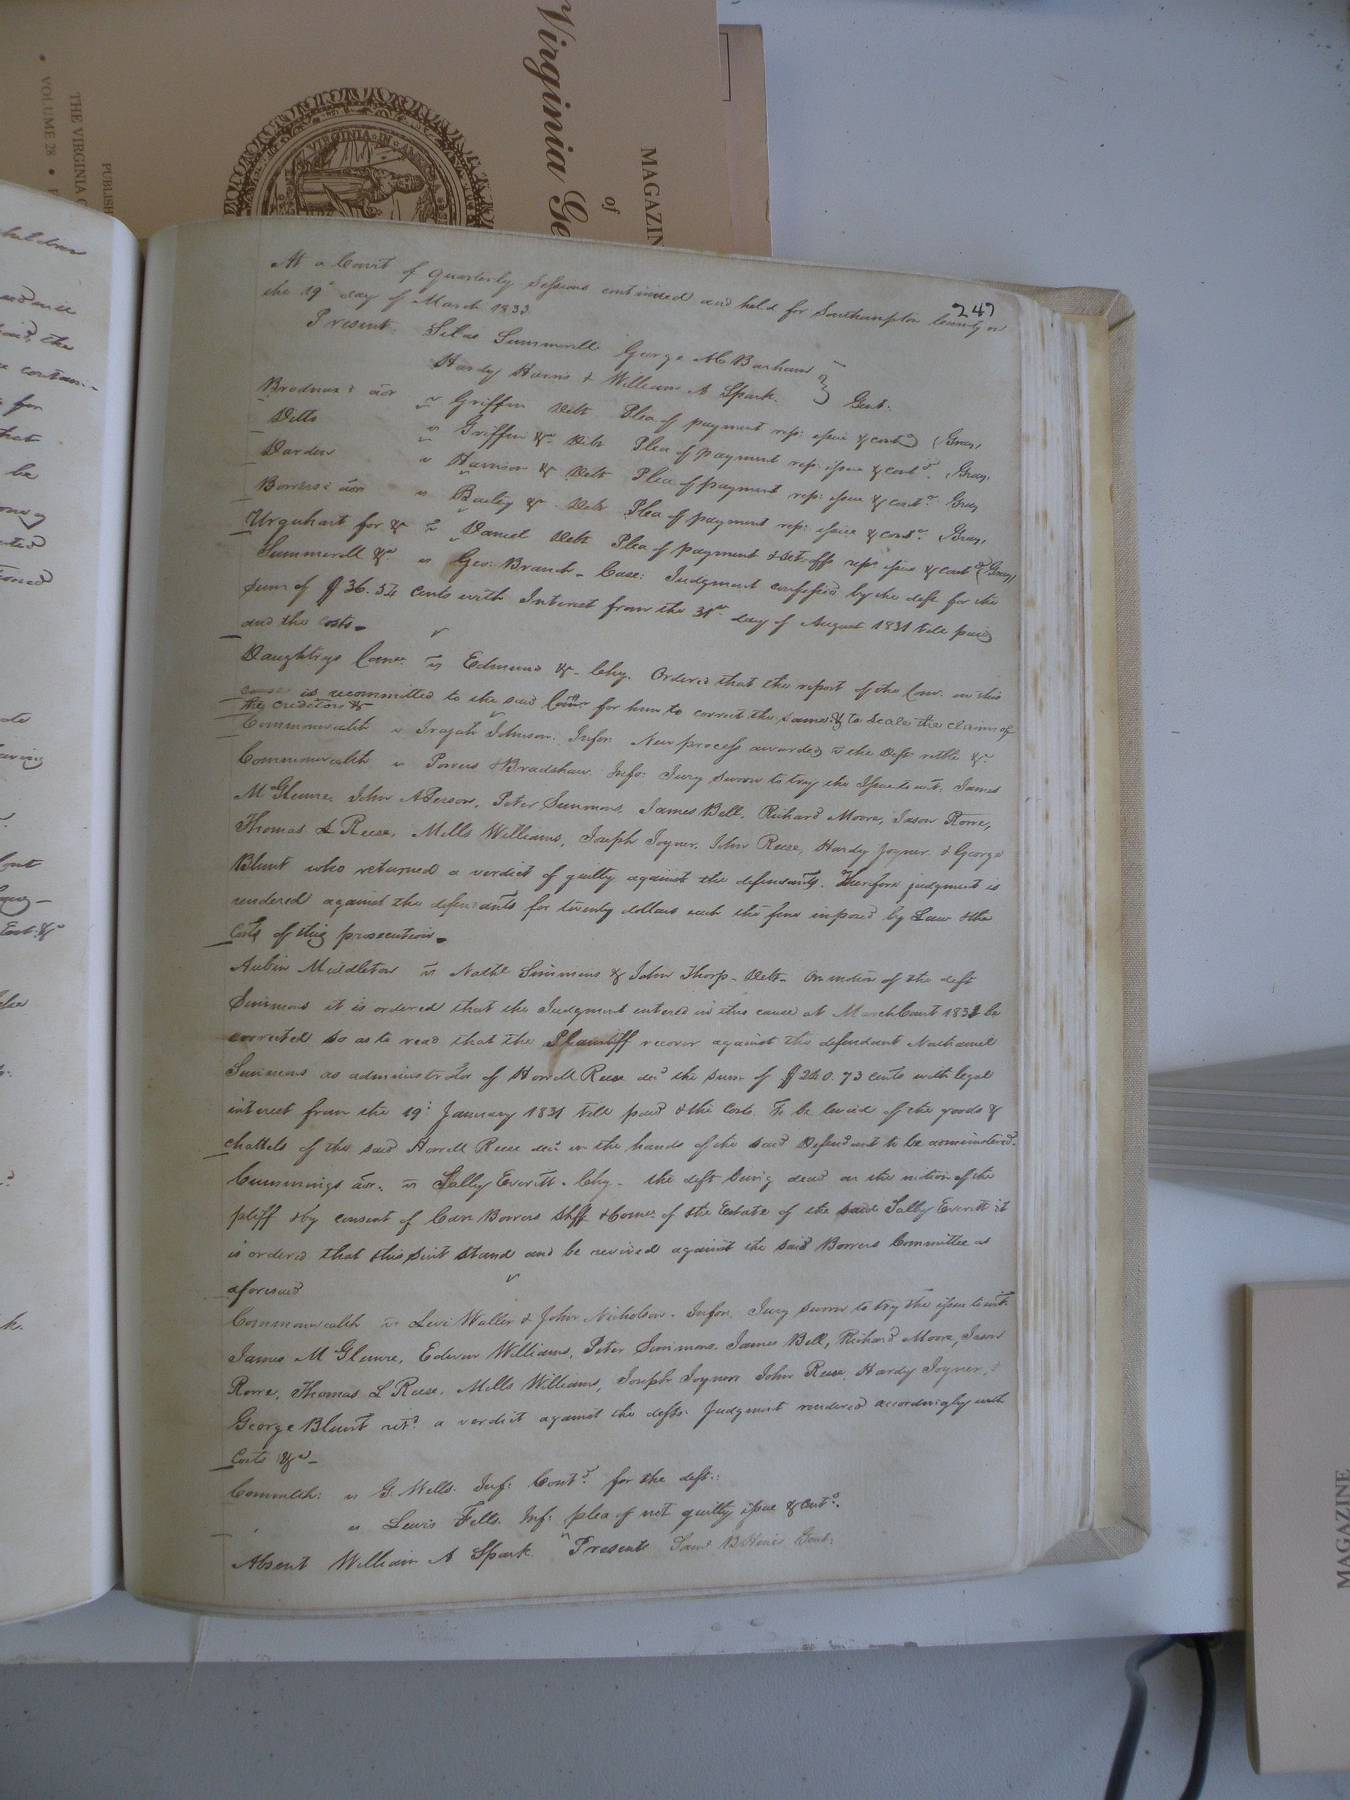 Virginia Ge
of
MAGAZIN
PUBLISH
THE VIRGINIA
VOLUME 28
247
At a Court of Quarterly Sessions continued and held for Southampton County on
the 19th day of March 1833
Present Silas Summerell George M Barham
Hardy Harris & William A Spark Gent.
vs Griffin Debt Plea of payment rep: issue & contd (Gray,
Ditto vs Griffin &c. Debt Plea of payment rep: issue & contd. Gray,
Darden vs Harrison &c Debt Plea of payment rep: issue & contd. Gray
vs Bailey &c Debt Plea of payment rep: issue & contd. Gray,
Urquhart for &c vs Daniel Debt Plea of payment & set-off rep issue & contd (Gray)
Summerell &c vs Geo: Branch - Case: Judgment confessed by the deft for the
sum of $ 36. 54 cents with Interest from the 31st day of August 1831 till paid
and the costs
Daughtrys Comr vs Edmund &c. Chy. Ordered that the report of the Comr. in this
cause is recommitted to the said Comr for him to correct the same & to scale the claims of
the creditors &c
Commonwealth vs Johnson. Infor. New process awarded vs the Deft
Commonwealth vs Powers & Bradshaw. Info: Jury sworn to try the Issue to wit. James
McGlemre, John A Person, Peter Simmons, James Bell, Richard Moore, Jason Rowe,
Thomas L Reese, Mills Williams, Joseph Joyner, John Reese, Hardy Joyner & George
Blunt who returned a verdict of guilty against the defendants. Therefore judgment is
rendered against the defendants for twenty dollars each the fine imposed by Law & the
Costs of this prosecution
Aubin Middleton vs Nathl Simmons & John Thorp - Debt - On motion of the deft
Simmons it is ordered that the Judgment entered in this cause at March Court 183 be
corrected so as to read that the Plaintiff recover against the defendant Nathaniel
Simmons as administrator of Horrell Reese decd the sum of $ 240. 73 cents with legal
interest from the 19: January 1831 till paid & the Costs To be levied of the goods &
chattels of the said Horrell Reese decd in the hands of the said Defendant to be administered.
Cummings vs Sally Everitt. Chy - the deft being dead on the motion of the
pltff & by consent of Carr Bowers Shff & Come of the Estate of the said Sally Everitt it
is ordered that this suit stand and be revived against the said Bowers Committee as
aforesaid
Commonwealth vs Levi Waller & John Nicholson. Infor. Jury sworn to try the issue to wit.
James McGlemre, Edwin Williams, Peter Simmons, James Bell, Richard Moore, Jason
Rowe, Thomas L Reese, Mills Williams, Joseph Joyner John Reese, Hardy Joyner, &
George Blunt retd a verdict against the defts. Judgment rendered accordingly with
Costs &c
Commlth: vs G. Wells. Inf: Contd for the deft:
vs Lewis Fells. Inf: plea of not guilty issue & contd.
Absent William A Spark Present Gent:
MAGAZINE